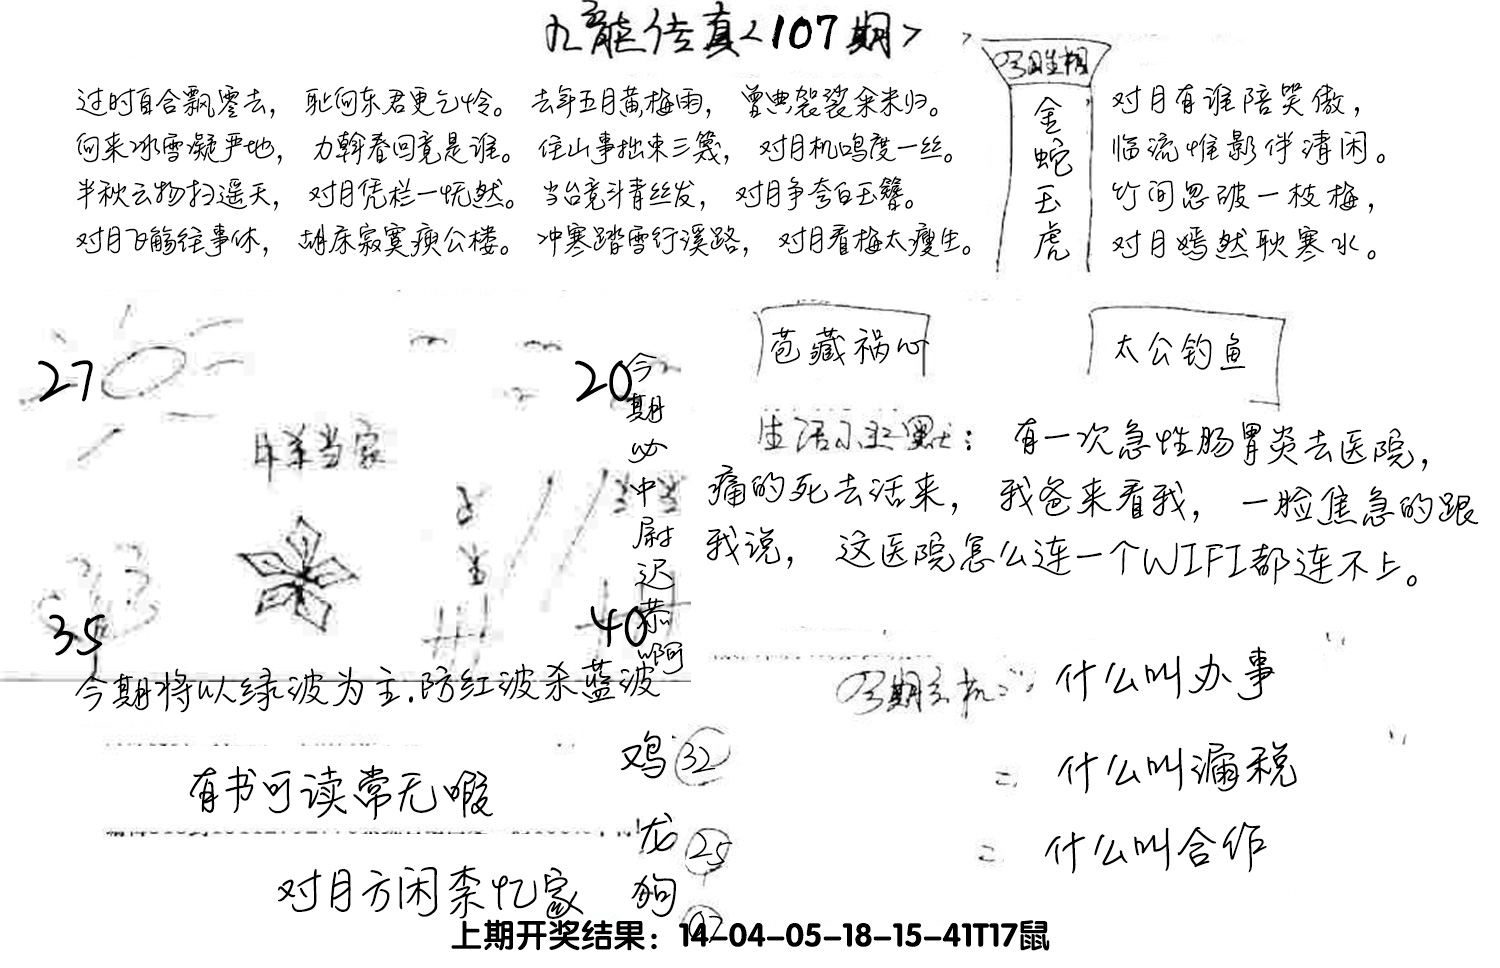 九龍传真<107期>
过时自合飘零去, 耻向东君更乞怜。 去年五月黄梅雨, 曾典袈裟籴米归。
向来冰雪凝严地, 力斡春回竟是谁。 住山事拙束三篾, 对月机鸣度一丝。
半秋云物扫遥天, 对月凭栏一怃然。 当台竞斗青丝发, 对月争夸白玉簪。
对月飞觞往事休, 胡床寂寞庾公楼。 冲寒踏雪行溪路, 对月看梅太瘦生。
金蛇玉虎
对月有谁陪笑傲,
临流惟影伴清闲。
竹间忽破一枝梅,
对月嫣然耿寒水。
27
20
羊当家
35
40
今期必中尉迟恭啊
今期将以绿波为主.防红波杀蓝波
苞藏祸心
太公钓鱼
生活幽默: 有一次急性肠胃炎去医院,
痛的死去活来, 我爸来看我, 一脸焦急的跟
我说, 这医院怎么连一个WIFI都连不上。
今期玄机: 什么叫办事
= 什么叫漏税
= 什么叫合作
有书可读常无暇
对月方闲柰忆家
鸡 32
龙 25
狗
上期开奖结果：14-04-05-18-15-41T17鼠